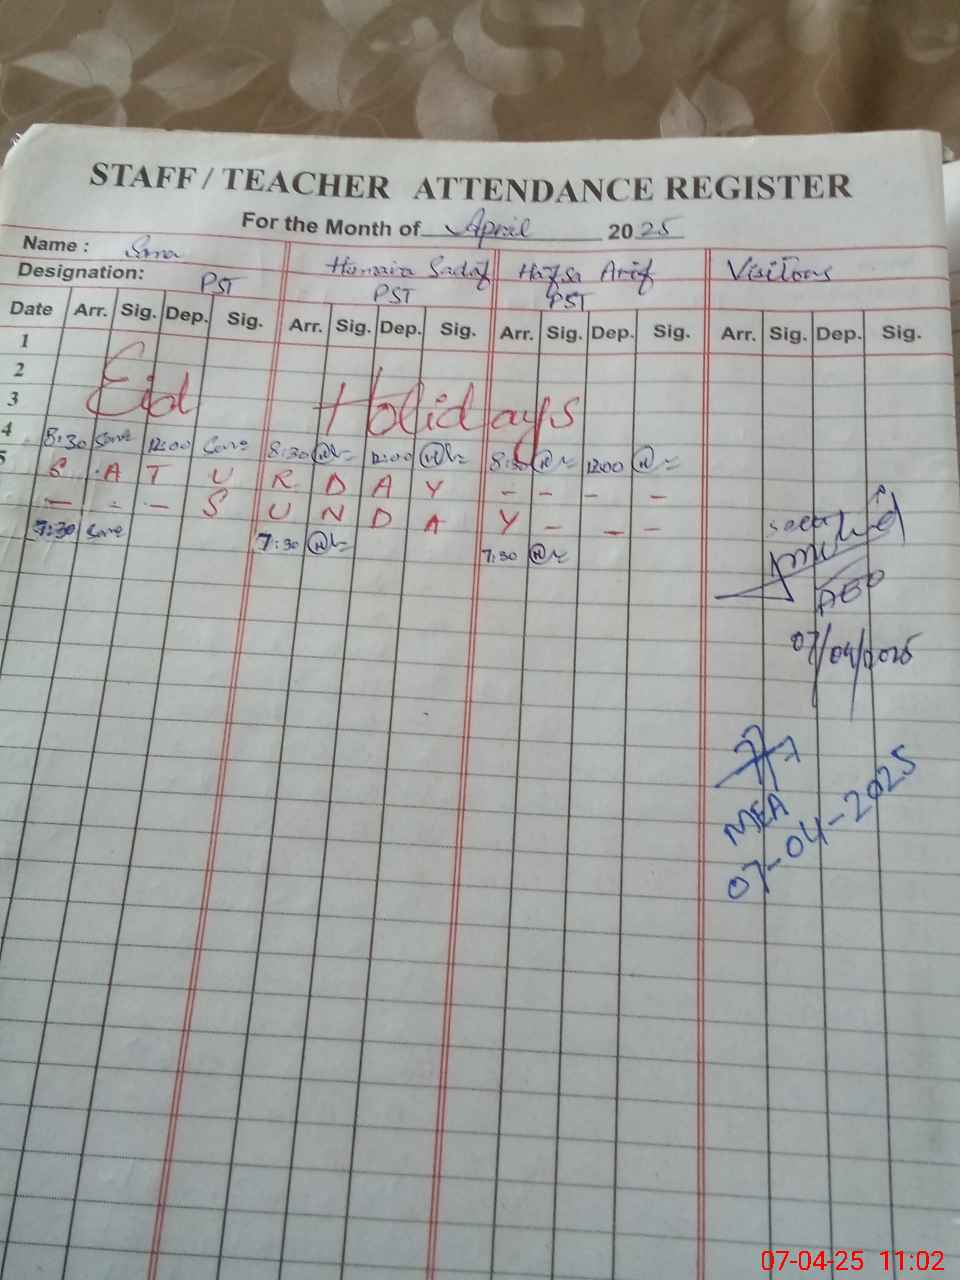 STAFF / TEACHER ATTENDANCE REGISTER
For the Month of April 2025
Name : Sana Humaira Sadaf Hafsa Arif Visitors
Designation: PST PST PST
Date Arr. Sig. Dep. Sig. Arr. Sig. Dep. Sig. Arr. Sig. Dep. Sig. Arr. Sig. Dep. Sig.
1
2
3
Eid Holidays
4 8:30 12:00 8:30 12:00 8:30 12:00
5 S A T U R D A Y - - - -
- - - S U N D A Y - - -
7:30 7:30 7:30
AEO
07/04/2025
MEA
07-04-2025
07-04-25 11:02